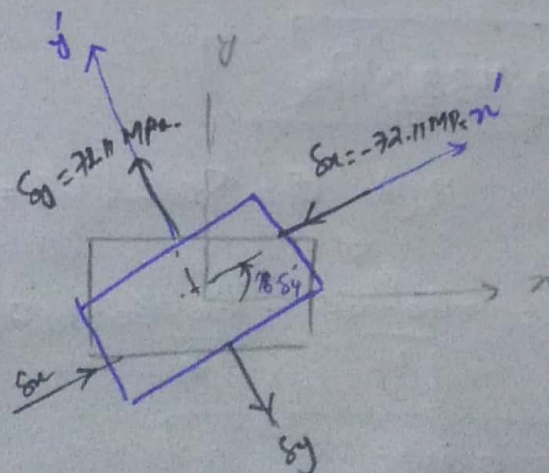 y'
y
δy = 72.11 MPa.
δx = -72.11 MPa
x'
x
δx
δy